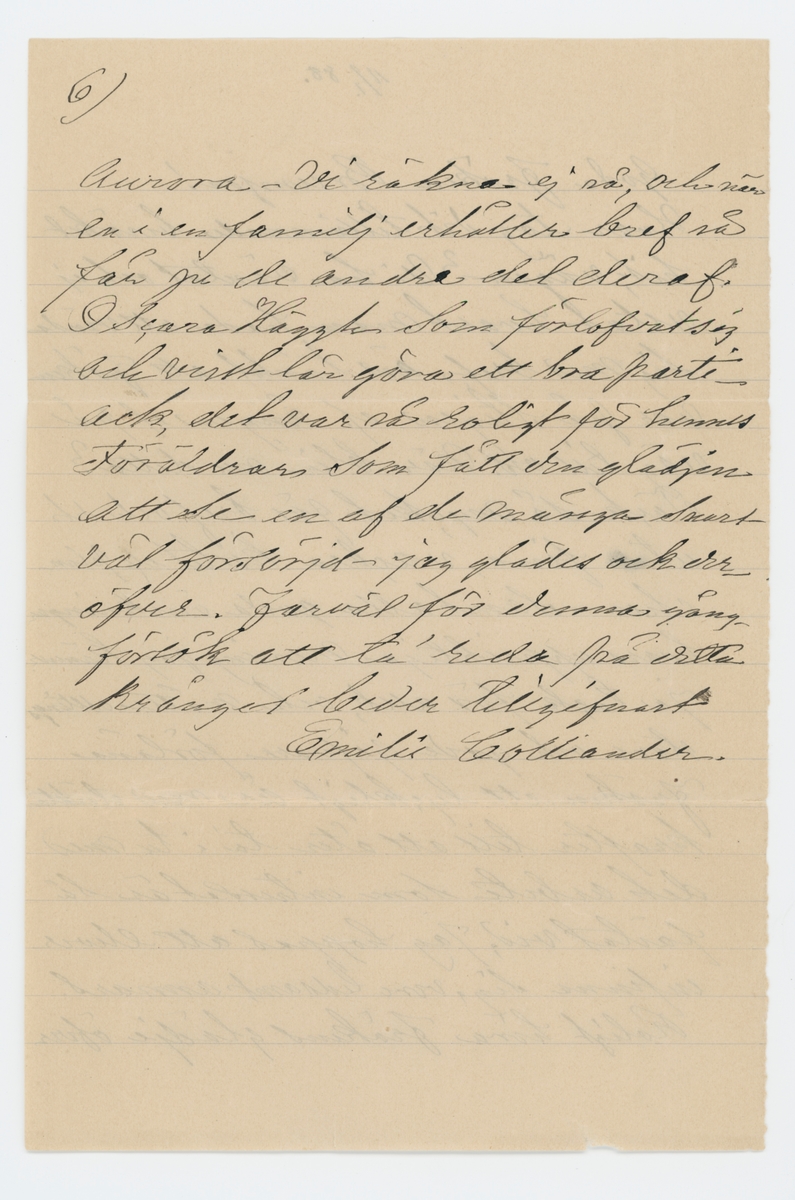 6)
Aurora – Vi räkna ej så, och när
en i en familj erhåller bref så
får ju de andra del deraf.
Oscara som förlofvat sig
och visst lär göra ett bra parti –
ack, det var så roligt för hennes
Föräldrar som fått den glädjen
att se en af de många snart
väl försörjd – jag glädes ock der-
öfver. Farväl för denna gång –
försök att ta' reda på detta
krångel beder tillgifnast
Emilie Colliander.